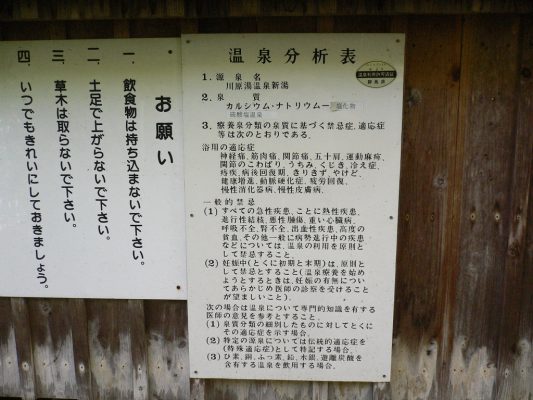 お願い
一、飲食物は持ち込まないで下さい。
二、土足で上がらないで下さい。
三、草木は取らないで下さい。
四、いつでもきれいにしておきましょう。
温泉分析表
1.源泉名
川原湯温泉新湯
2.泉質
カルシウム・ナトリウムー塩化物
硫酸塩温泉
3.療養泉分類の泉質に基づく禁忌症、適応症
等は次のとおりである。
浴用の適応症
神経痛、筋肉痛、関節痛、五十肩、運動麻痺、
関節のこわばり、うちみ、くじき、冷え症、
痔疾、病後回復期、きりきず、やけど、
健康増進、動脈硬化症、疲労回復、
慢性消化器病、慢性皮膚病、
一般的禁忌
(1)すべての急性疾患、ことに熱性疾患、
進行性結核、悪性腫傷、重い心臓病、
呼吸不全、腎不全、出血性疾患、高度の
貧血、その他一般に病勢進行中の疾患
などについては、温泉の利用を原則とし
て禁忌すること。
(2)妊娠中(とくに初期と末期)は、原則と
して禁忌とすること(温泉療養を始め
ようとするときは、妊娠の有無につい
てあらかじめ医師の診察を受けること
が望ましいこと)。
次の場合は温泉について専門的知識を有する
医師の意見を参考とすること。
(1)泉質分類の細別したものに対してとくに
その適応症を示す場合。
(2)特定の源泉については伝統的適応症を
(特殊適応症)として特記する場合。
(3)ひ素、銅、ふっ素、鉛、水銀、遊離炭酸を
含有する温泉を飲用する場合。